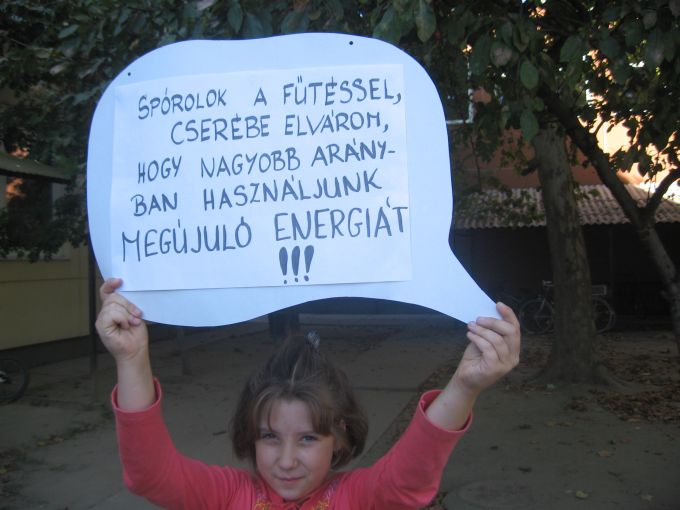 SPÓROLOK A FŰTÉSSEL,
CSERÉBE ELVÁROM,
HOGY NAGYOBB ARÁNY-
BAN HASZNÁLJUNK
MEGÚJULÓ ENERGIÁT
!!!